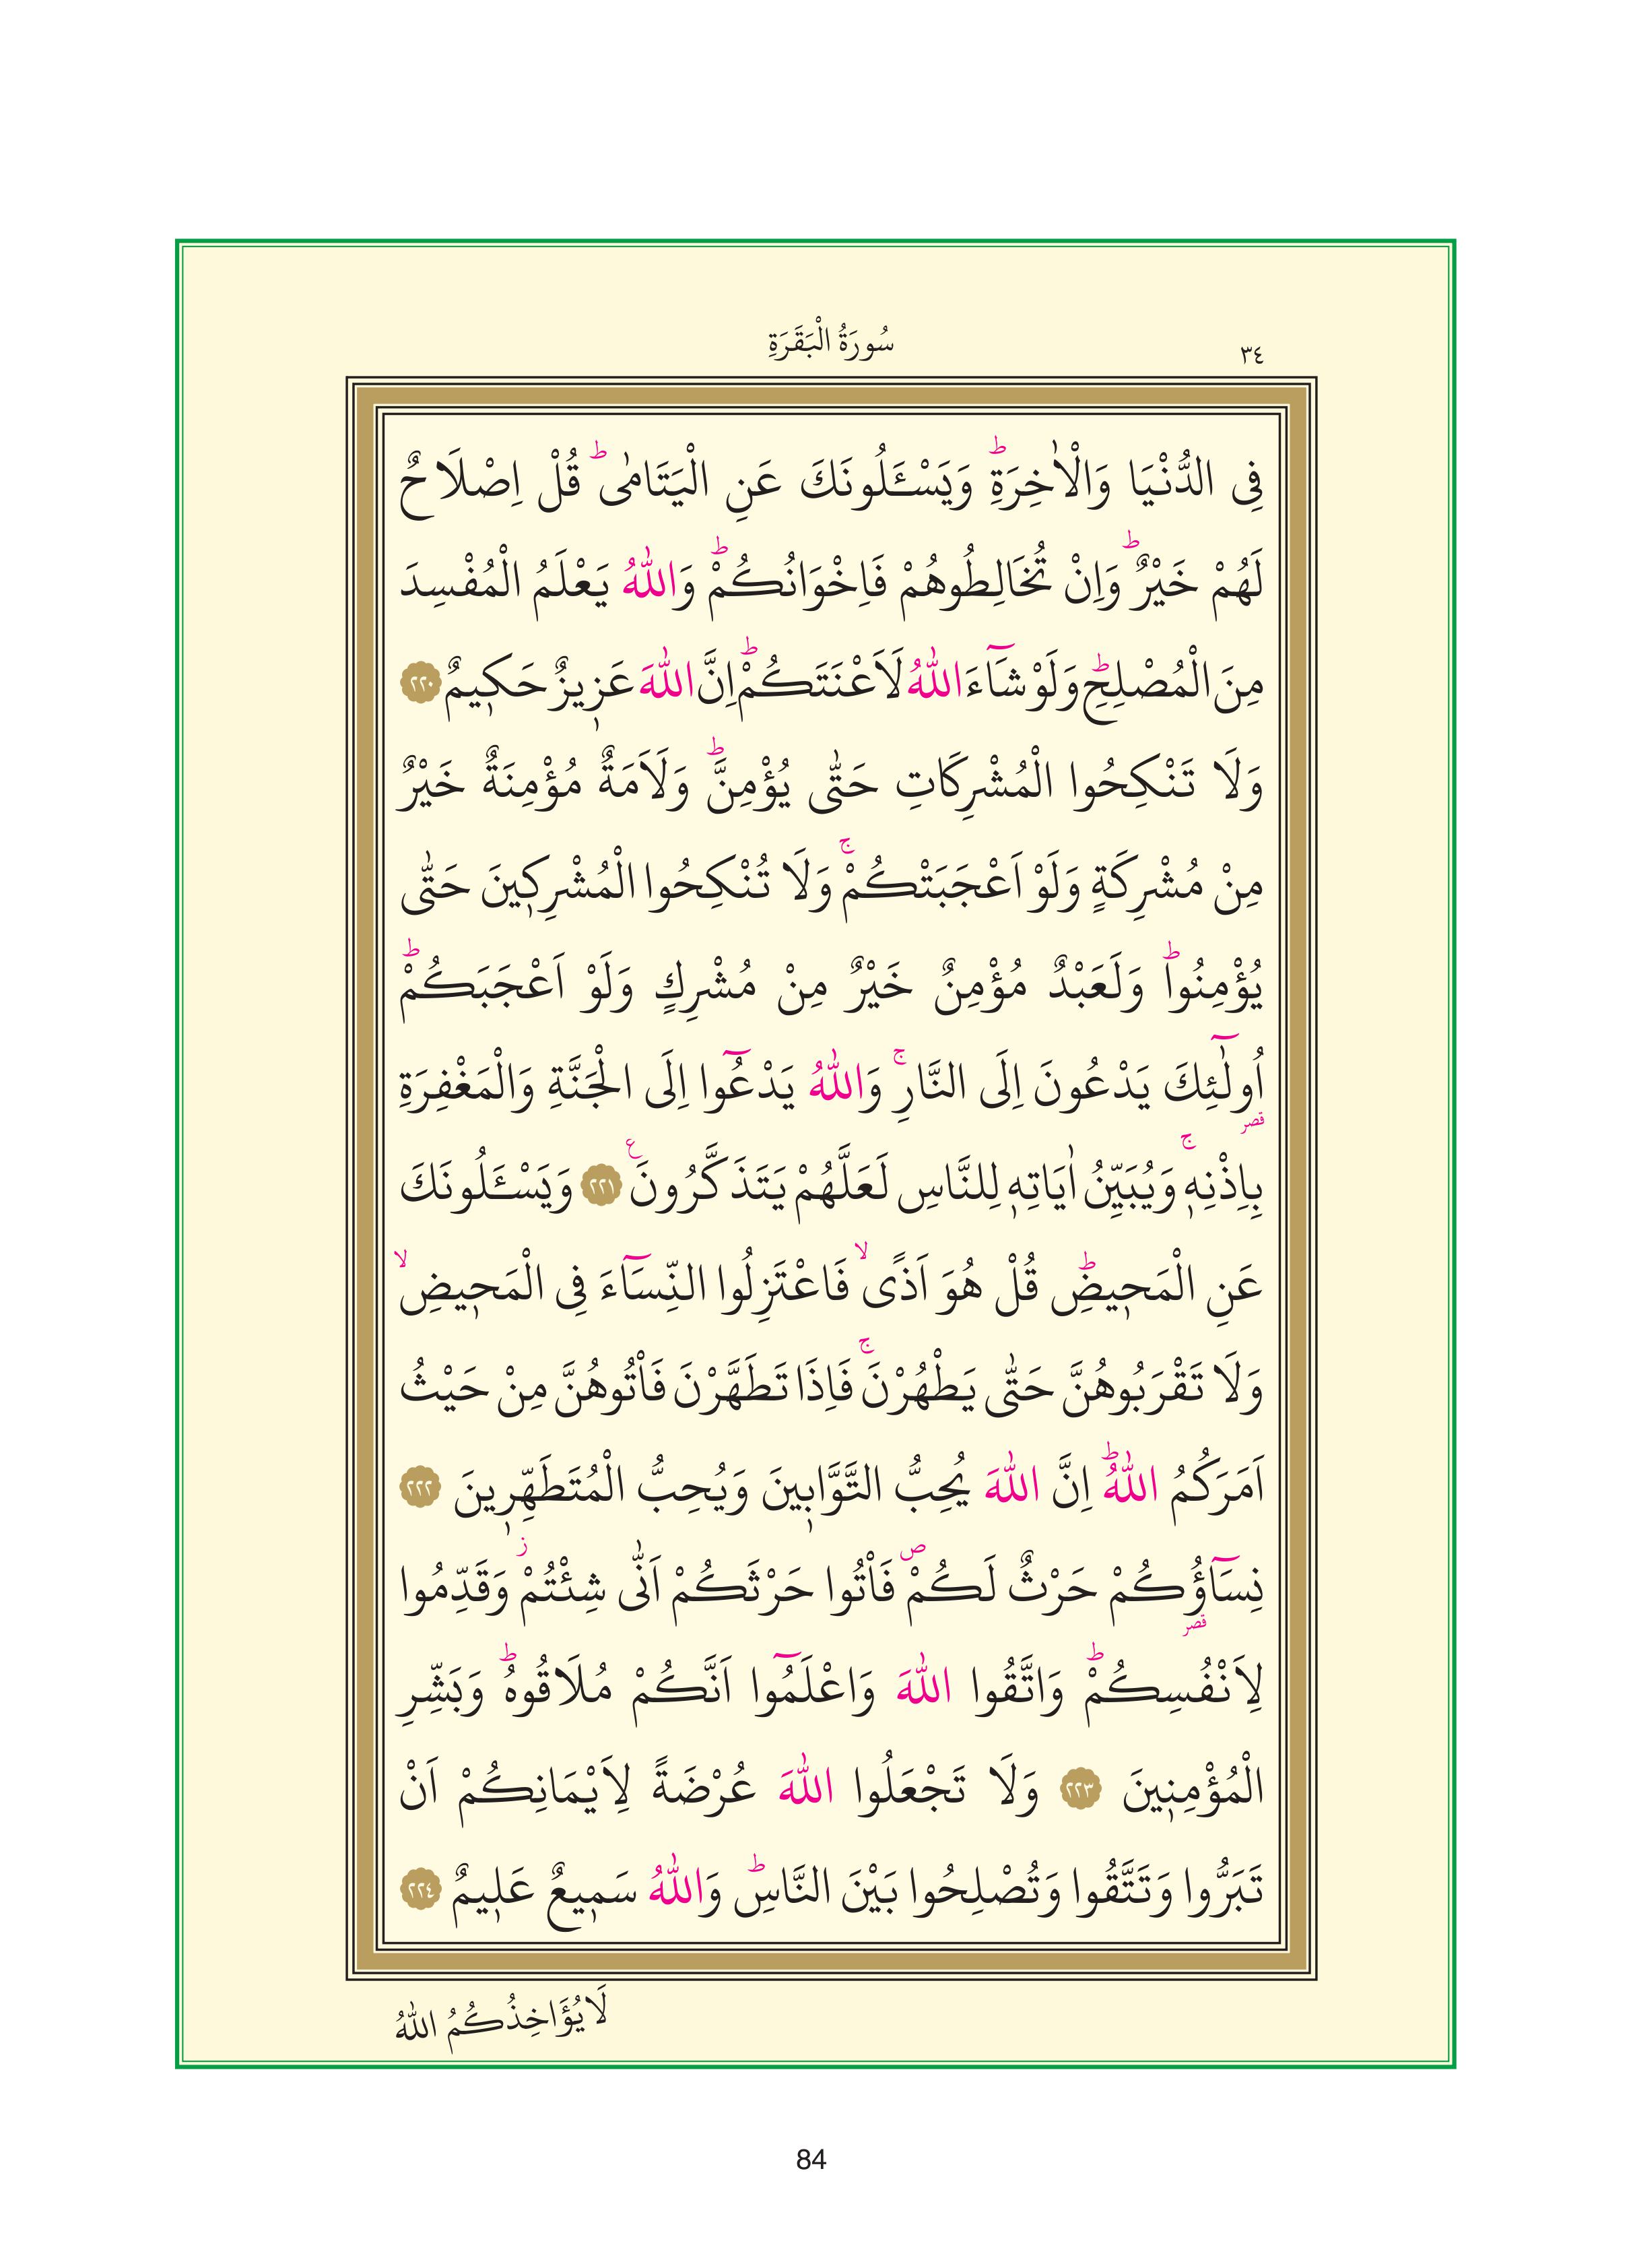 ٣٤
سُورَةُ الْبَقَرَةِ
فِى الدُّنْيَا وَالْاٰخِرَةِۜ وَيَسْـَٔلُونَكَ عَنِ الْيَتَامٰىۜ قُلْ اِصْلَاحٌ
لَهُمْ خَيْرٌۜ وَاِنْ تُخَالِطُوهُمْ فَاِخْوَانُكُمْۜ وَاللّٰهُ يَعْلَمُ الْمُفْسِدَ
مِنَ الْمُصْلِحِۜ وَلَوْ شَٓاءَ اللّٰهُ لَاَعْنَتَكُمْۜ اِنَّ اللّٰهَ عَزٖيزٌ حَكٖيمٌ ﴿٢٢٠﴾
وَلَا تَنْكِحُوا الْمُشْرِكَاتِ حَتّٰى يُؤْمِنَّۜ وَلَاَمَةٌ مُؤْمِنَةٌ خَيْرٌ
مِنْ مُشْرِكَةٍ وَلَوْ اَعْجَبَتْكُمْۚ وَلَا تُنْكِحُوا الْمُشْرِكٖينَ حَتّٰى
يُؤْمِنُواۜ وَلَعَبْدٌ مُؤْمِنٌ خَيْرٌ مِنْ مُشْرِكٍ وَلَوْ اَعْجَبَكُمْۜ
اُولٰٓئِكَ يَدْعُونَ اِلَى النَّارِۚ وَاللّٰهُ يَدْعُٓوا اِلَى الْجَنَّةِ وَالْمَغْفِرَةِ
قصر
بِاِذْنِهٖۚ وَيُبَيِّنُ اٰيَاتِهٖ لِلنَّاسِ لَعَلَّهُمْ يَتَذَكَّرُونَ ع ﴿٢٢١﴾ وَيَسْـَٔلُونَكَ
عَنِ الْمَحٖيضِۜ قُلْ هُوَ اَذًىۙ فَاعْتَزِلُوا النِّسَٓاءَ فِى الْمَحٖيضِۙ
وَلَا تَقْرَبُوهُنَّ حَتّٰى يَطْهُرْنَۚ فَاِذَا تَطَهَّرْنَ فَاْتُوهُنَّ مِنْ حَيْثُ
اَمَرَكُمُ اللّٰهُۜ اِنَّ اللّٰهَ يُحِبُّ التَّوَّابٖينَ وَيُحِبُّ الْمُتَطَهِّرٖينَ ﴿٢٢٢﴾
نِسَٓاؤُكُمْ حَرْثٌ لَكُمْࣕ فَاْتُوا حَرْثَكُمْ اَنّٰى شِئْتُمْؗ وَقَدِّمُوا
قصر
لِاَنْفُسِكُمْۜ وَاتَّقُوا اللّٰهَ وَاعْلَمُٓوا اَنَّكُمْ مُلَاقُوهُۜ وَبَشِّرِ
الْمُؤْمِنٖينَ ﴿٢٢٣﴾ وَلَا تَجْعَلُوا اللّٰهَ عُرْضَةً لِاَيْمَانِكُمْ اَنْ
تَبَرُّوا وَتَتَّقُوا وَتُصْلِحُوا بَيْنَ النَّاسِۜ وَاللّٰهُ سَمٖيعٌ عَلٖيمٌ ﴿٢٢٤﴾
لَا يُؤَاخِذُكُمُ اللّٰهُ
84